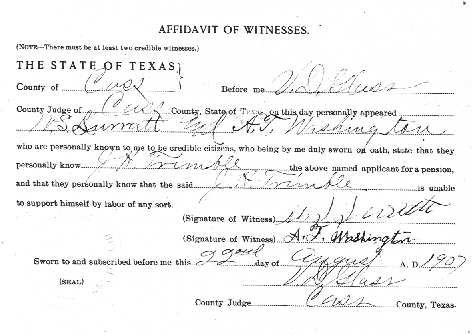 AFFIDAVIT OF WITNESSES.
(NOTE—There must be at least two credible witnesses.)
THE STATE OF TEXAS,
County of Cass Before me V.D. Glass
County Judge of Cass County, State of Texas, on this day personally appeared
and A.T. Washington
who are personally known to me to be credible citizens, who being by me duly sworn on oath, state that they
personally know Trimble the above named applicant for a pension,
and that they personally know that the said Trimble is unable
to support himself by labor of any sort.
(Signature of Witness)
(Signature of Witness) A.T. Washington
Sworn to and subscribed before me this day of August A. D. 1907
(SEAL) Glass
County Judge Cass County, Texas.